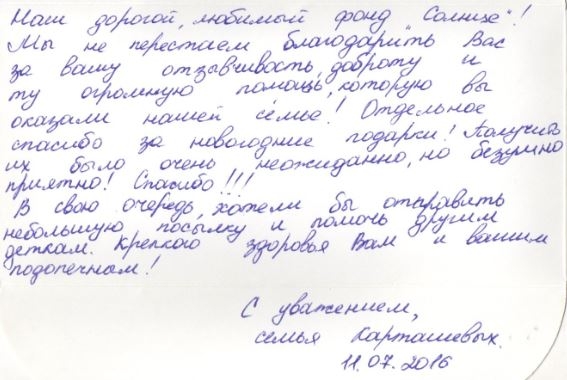 Наш дорогой, любимый фонд "Солнце"!
Мы не перестаем благодарить Вас
за вашу отзывчивость, доброту и
ту огромную помощь, которую вы
оказали нашей семье! Отдельное
спасибо за новогодние подарки! Получить
их было очень неожиданно, но безумно
приятно! Спасибо!!!
В свою очередь, хотели бы отправить
небольшую посылку и помочь другим
деткам. Крепкого здоровья Вам и вашим
подопечным!
С уважением,
семья Карташевых.
11.07.2016